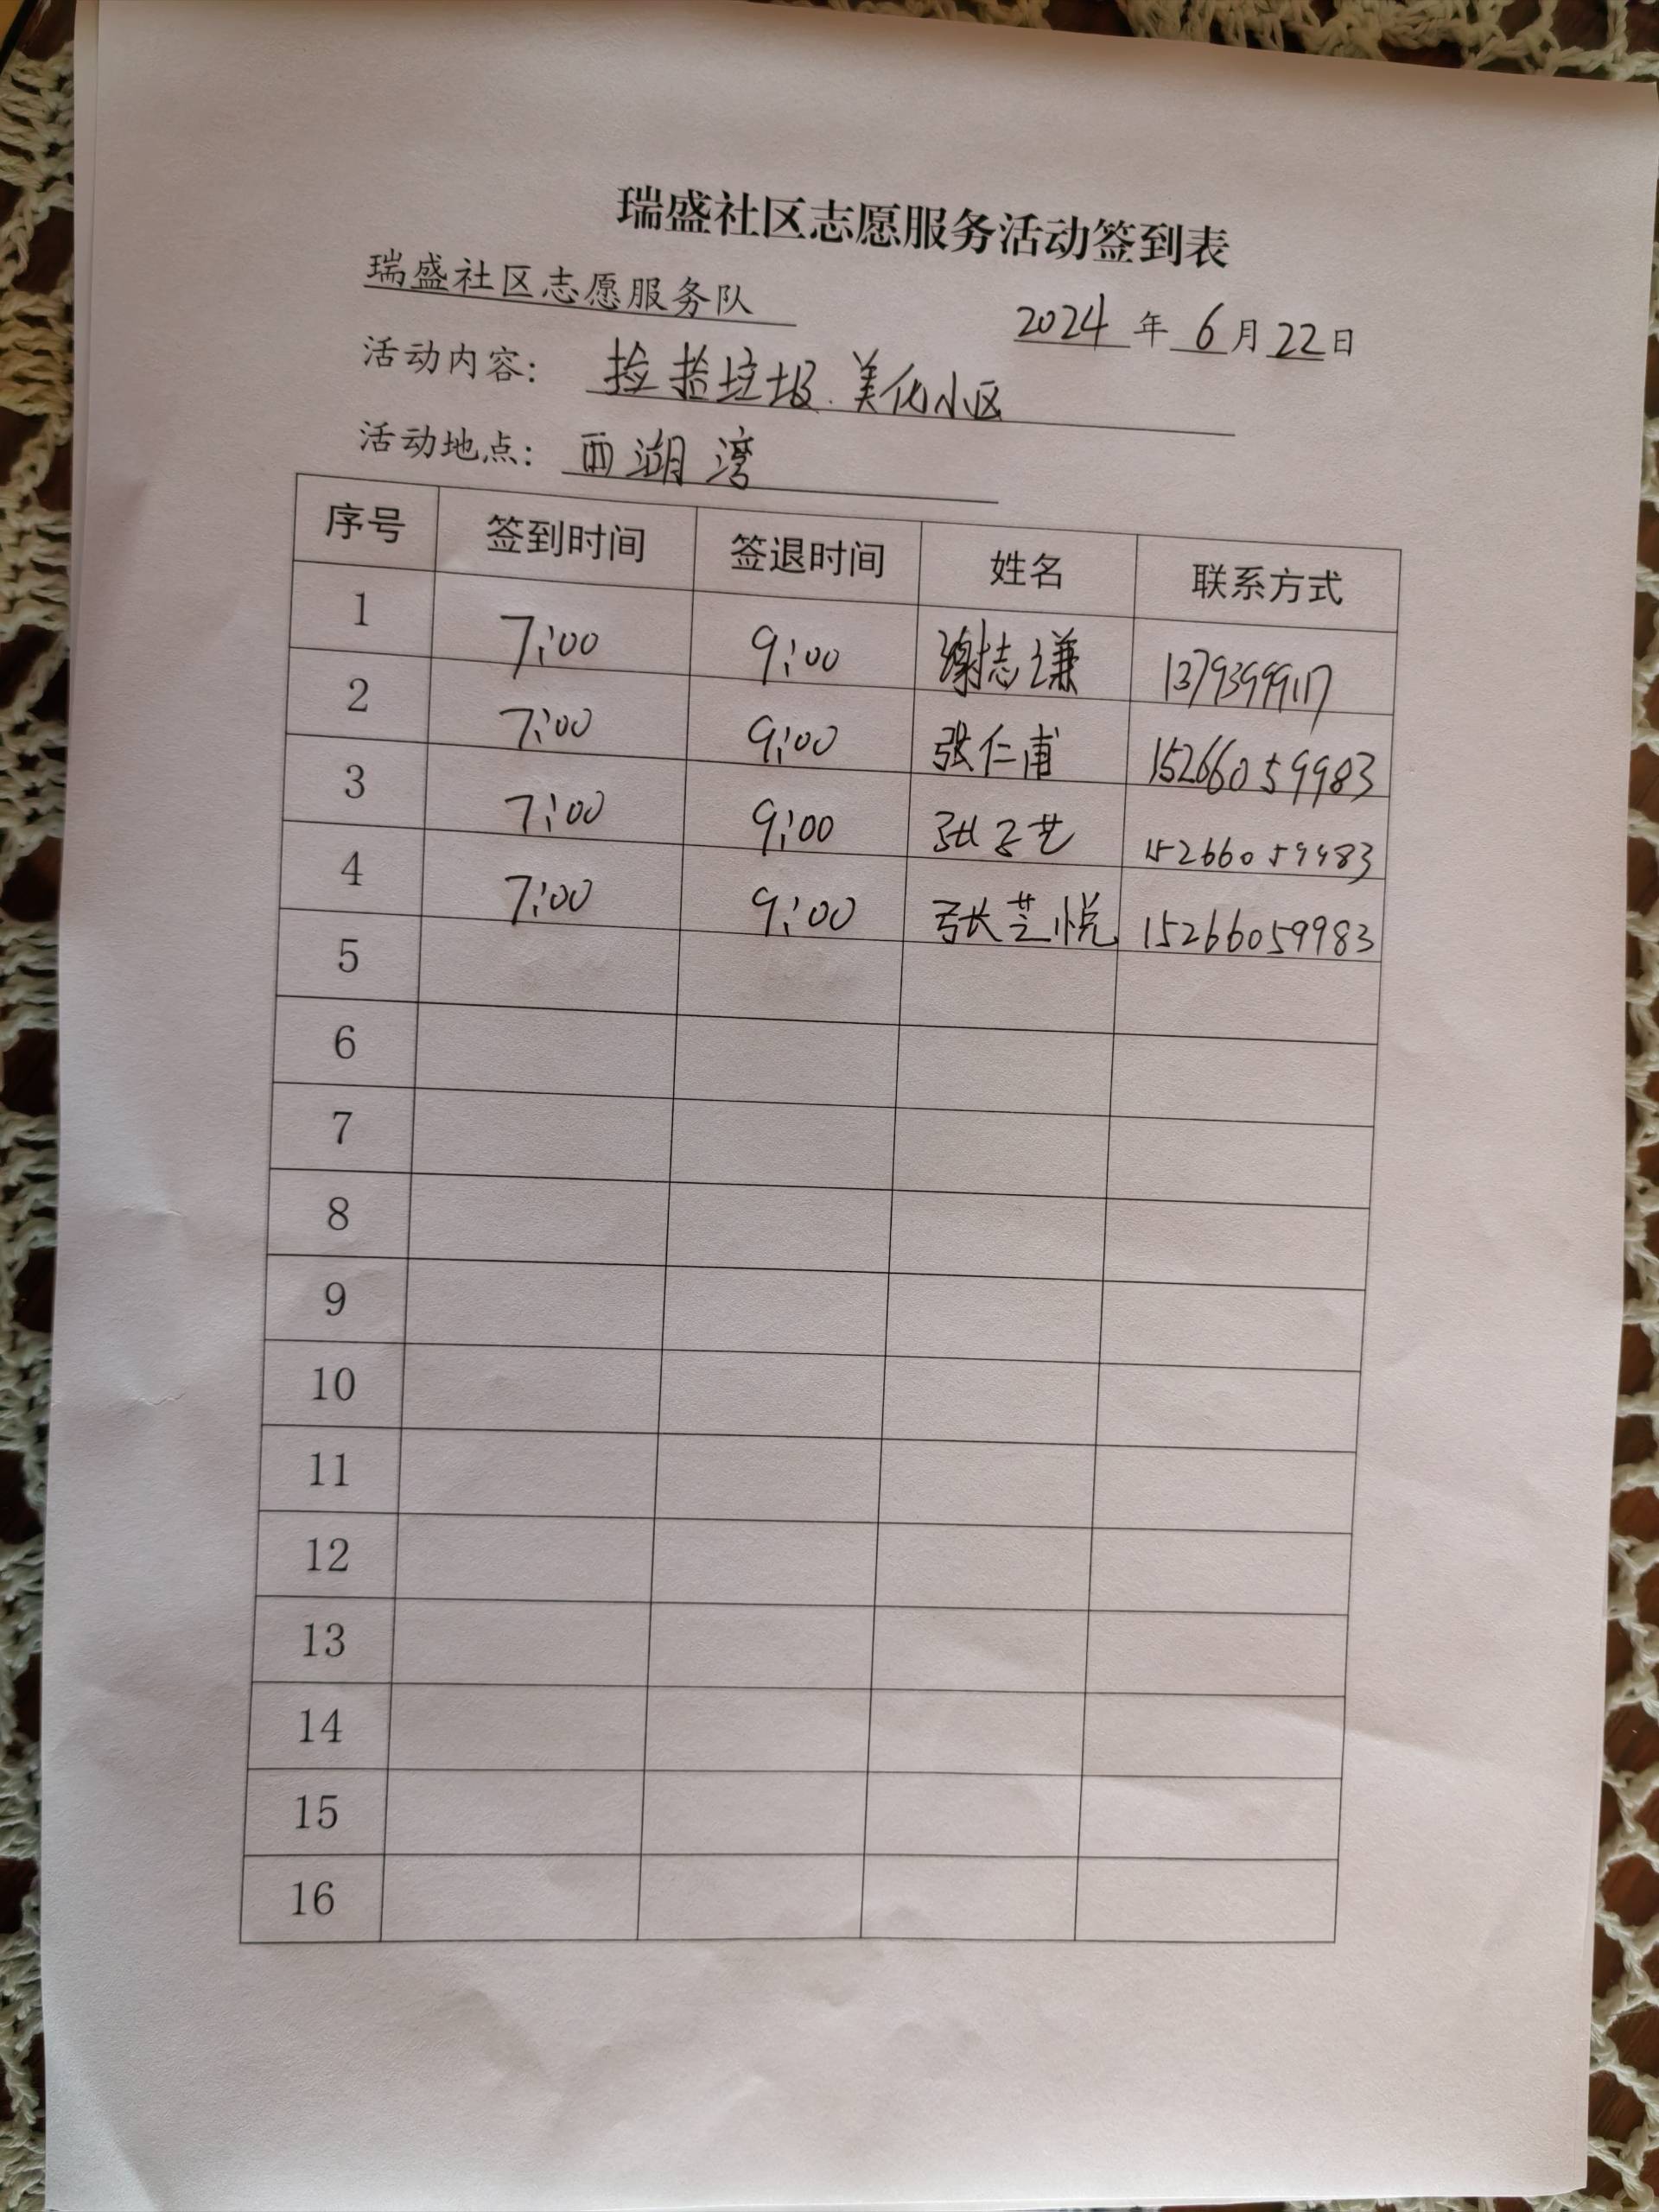 瑞盛社区志愿服务活动签到表
瑞盛社区志愿服务队 2024年6月22日
活动内容: 捡拾垃圾.美化小区
活动地点: 西湖湾
序号 签到时间 签退时间 姓名 联系方式
1 7:00 9:00 谢志谦
2 7:00 9:00 张仁甫 15266059983
3 7:00 9:00 张子艺 15266059983
4 7:00 9:00 张芝悦 15266059983
5
6
7
8
9
10
11
12
13
14
15
16